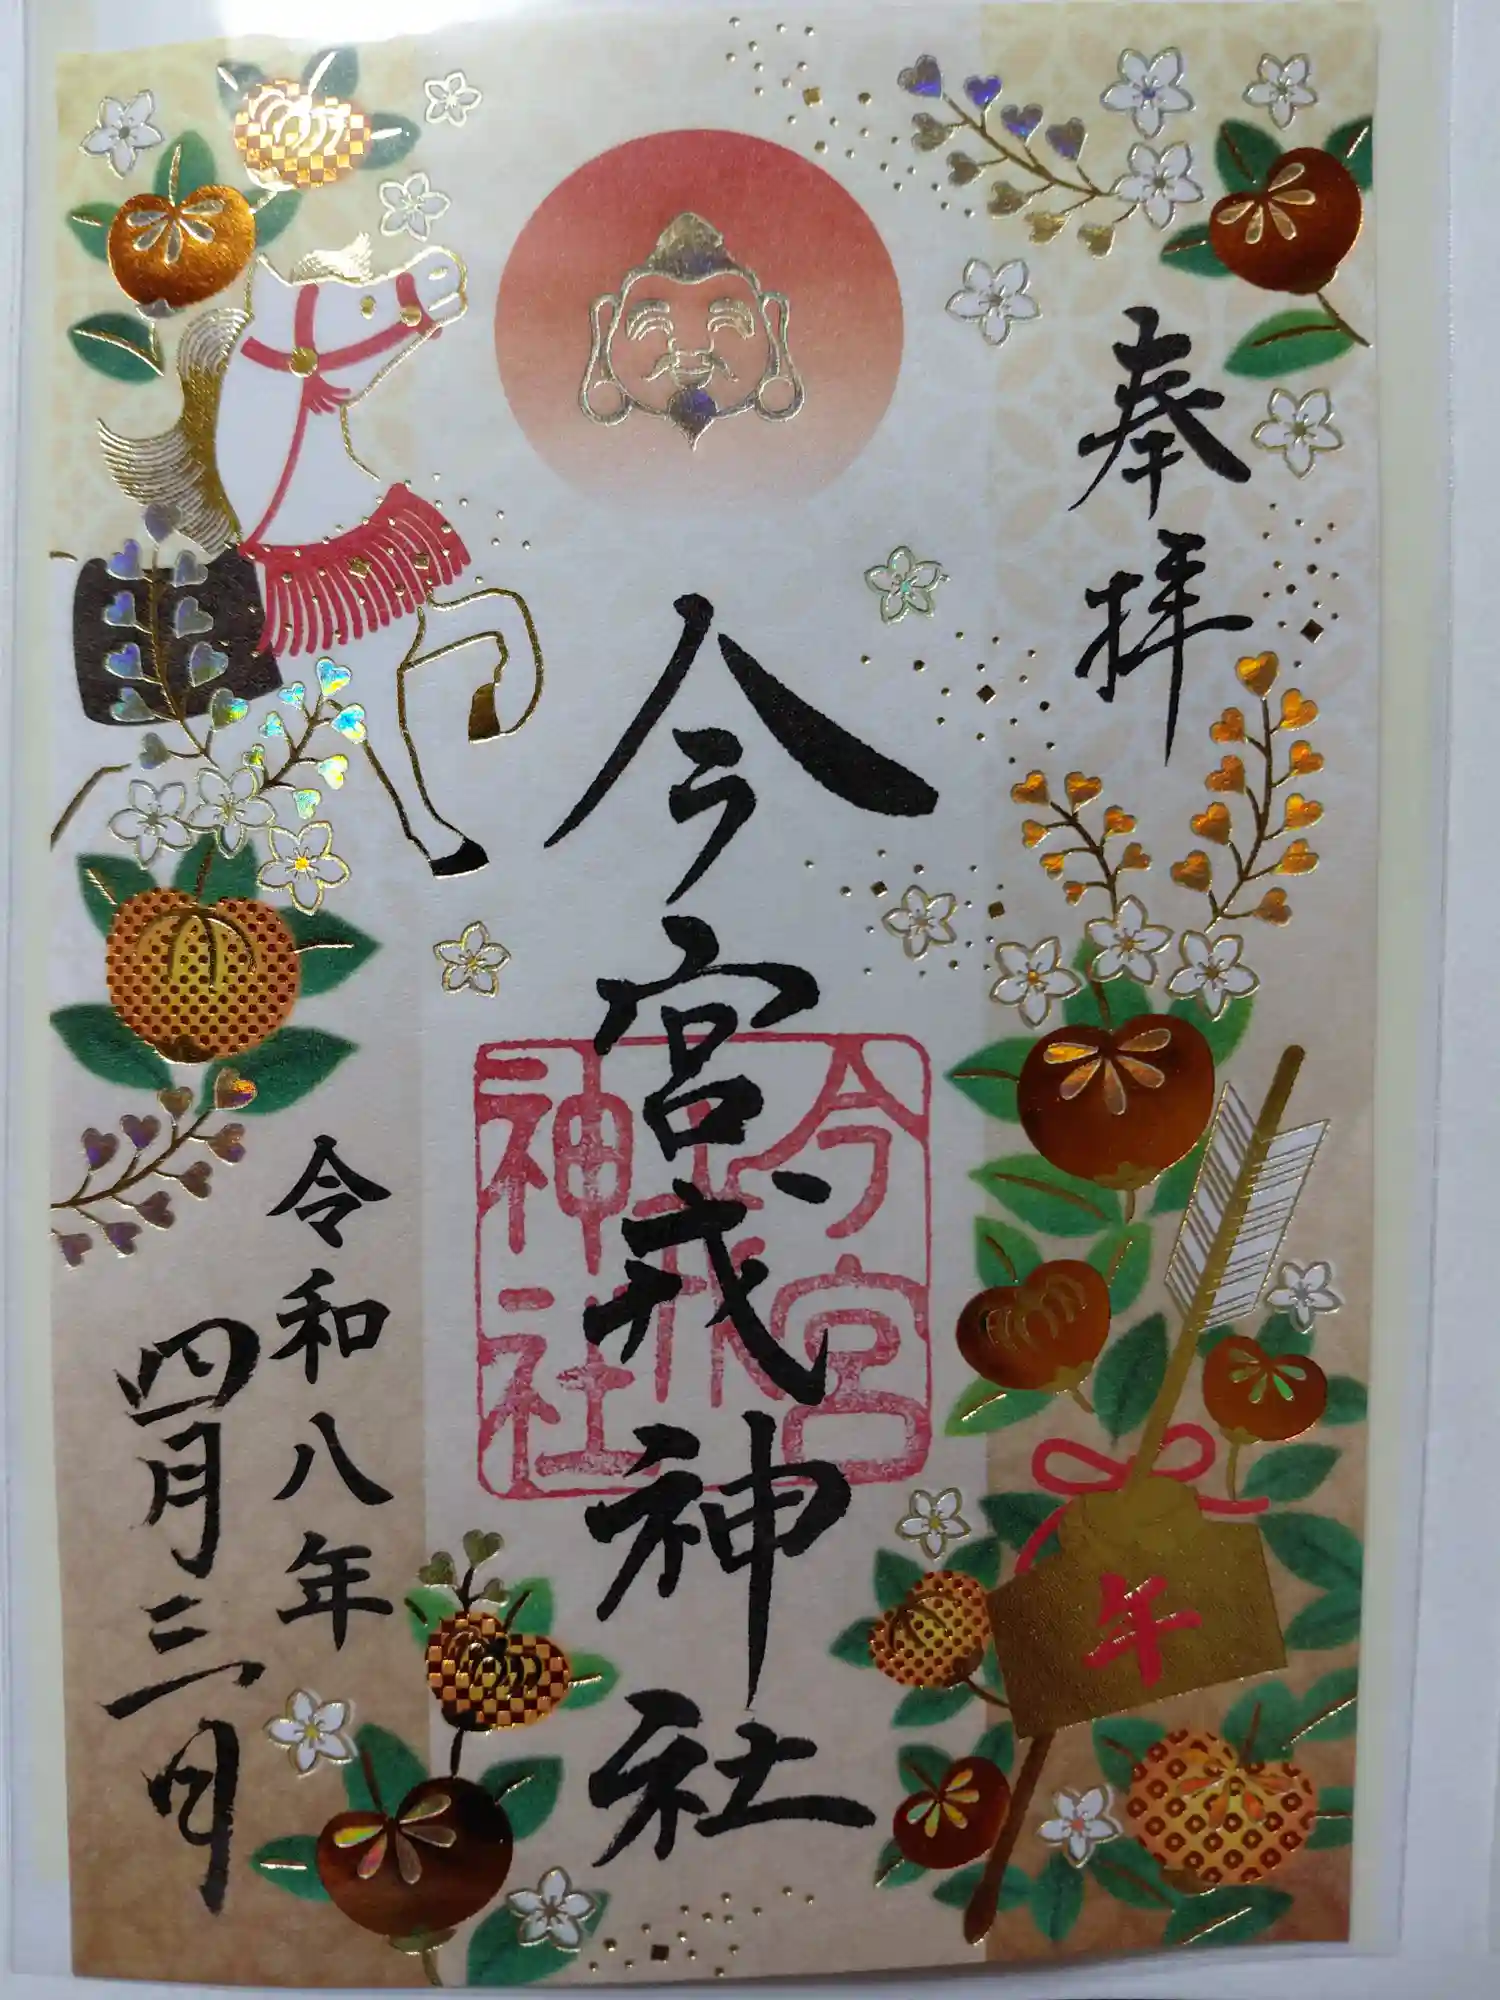 奉拝
今宮戎神社
今宮戎神社
令和八年
四月三日
午